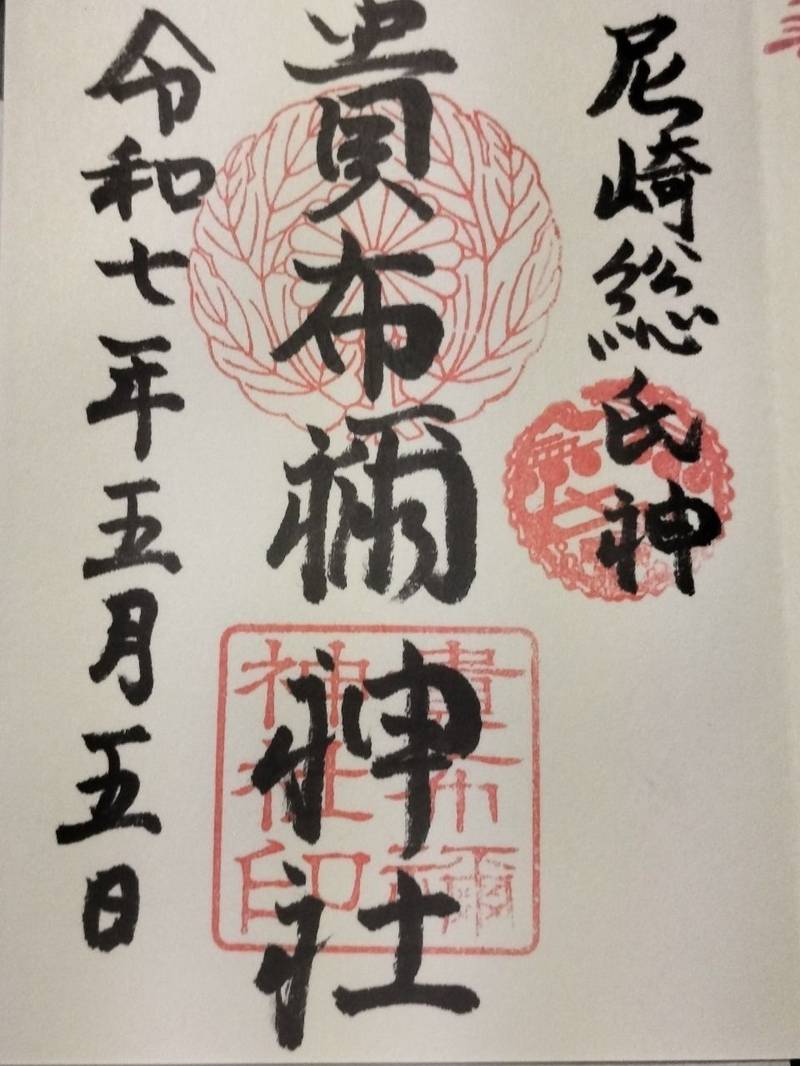 尼崎総氏神
貴布禰神社
令和七年五月五日
貴布禰
神社印